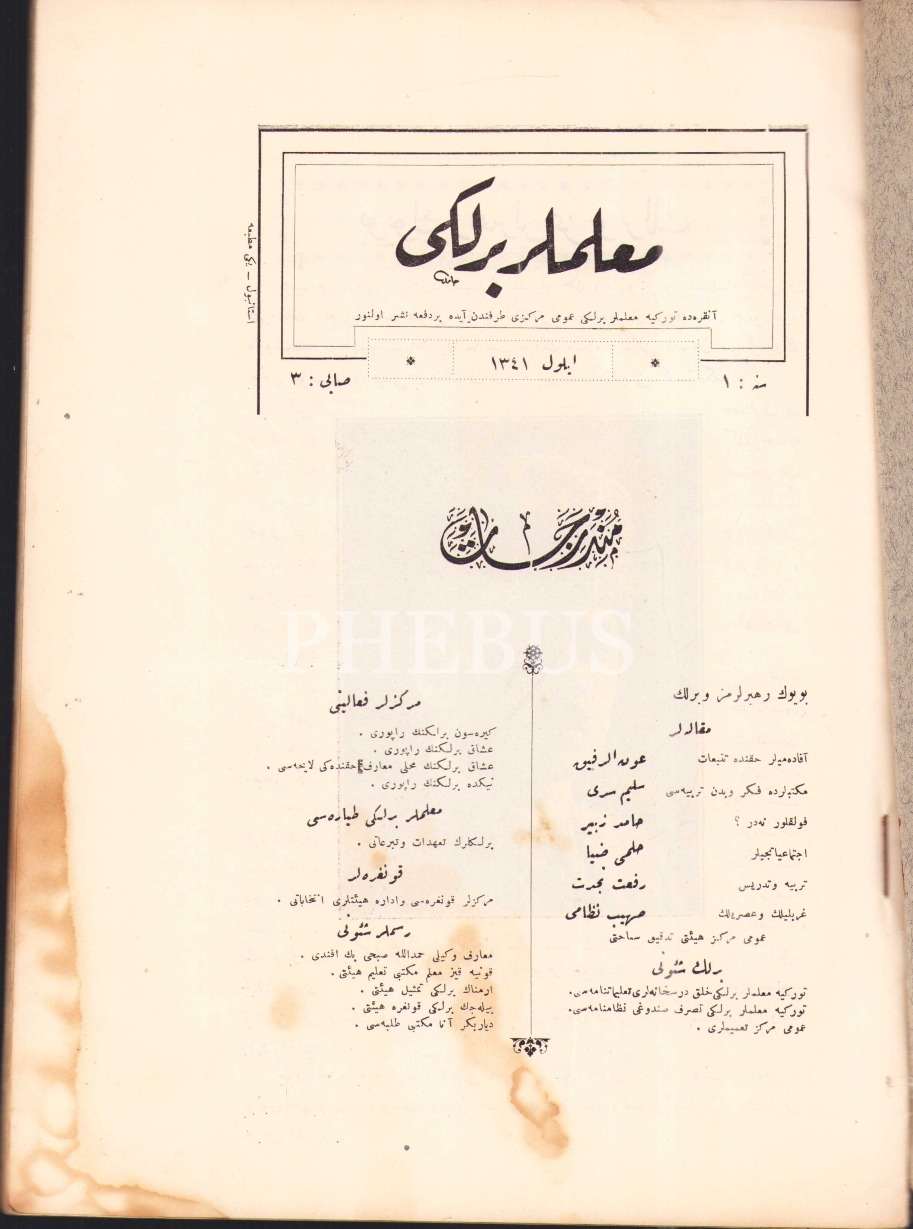 معلملر برلكی
آنقره‌ده توركیه معلملر برلكی عمومی مركزی طرفندن آیده بردفعه نشر اولنور
سنه : ١
ایلول ١٣٤١
صایی : ٣
استانبول — یكی مطبعه
مندرجات
PHEBUS
بویوك رهبرلرمز وبرلك
مقالەلر
آقاده‌میلر حقنده تتبعات عون الرفیق
مكتبلرده فكر وبدن تربیه‌سی سلیم سری
فولقلور نه‌در ؟ حامد زبیر
اجتماعیاتجیلر حلمی ضیا
تربیه وتدریس رفعت نجدت
غربلیلك وعصریلك صهیب نظامی
عمومی مركز هیئتی تدقیق سیاحتی
برلك شئونی
توركیه معلملر برلكی خلق درسخانه‌لری تعلیماتنامه‌سی.
توركیه معلملر برلكی تصرف صندوغی نظامنامه‌سی.
عمومی مركز تعمیملری .
مركزلر فعالیتی
كیره‌سون برلكنك راپوری .
عشاق برلكنك راپوری .
عشاق برلكنك محلی معارف حقنده‌كی لایحه‌سی .
نیكده برلكنك راپوری .
معلملر برلكی طیاره‌سی
برلكلرك تعهدات وتبرعاتی .
قونغره‌لر
مركزلر قونغره‌سی واداره هیئتلری انتخاباتی .
رسملر شئونی
معارف وكیلی حمدالله صبحی بك افندی .
قونیه قیز معلم مكتبی تعلیم هیئتی .
ارمناك برلكی تمثیل هیئتی .
بیله‌جك برلكی قونغره هیئتی .
دیاربكر آنا مكتبی طلبه‌سی .